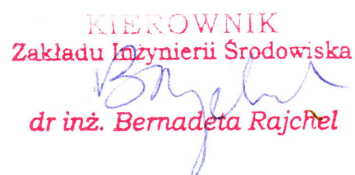 KIEROWNIK
Zakładu Inżynierii Środowiska
dr inż. Bernadeta Rajchel